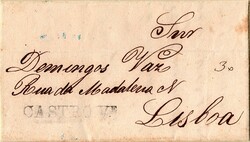 Snr
Domingos Vaz
Rua da Madalena N 30
Lisboa